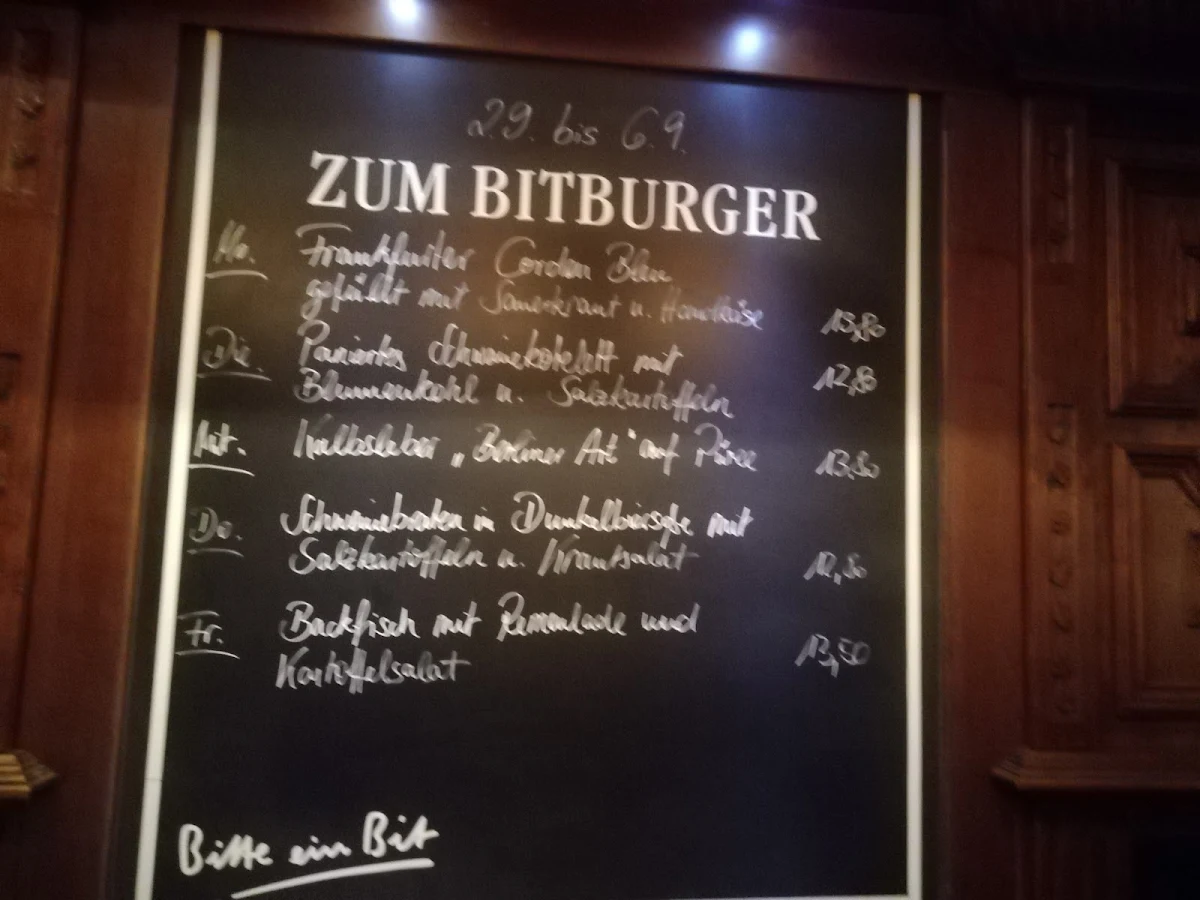 2.9. bis 6.9.
ZUM BITBURGER
Mo. Frankfurter Cordon Bleu
gefüllt mit Sauerkraut u. Handkäse 15,80
Die. Paniertes Schweinekotelett mit
Blumenkohl u. Salzkartoffeln 12,80
Mit. Kalbsleber „Berliner Art“ auf Püree 13,80
Do. Schweinebraten in Dunkelbiersoße mit
Salzkartoffeln u. Krautsalat
Fr. Backfisch mit Remoulade und
Kartoffelsalat 13,50
Bitte ein Bit